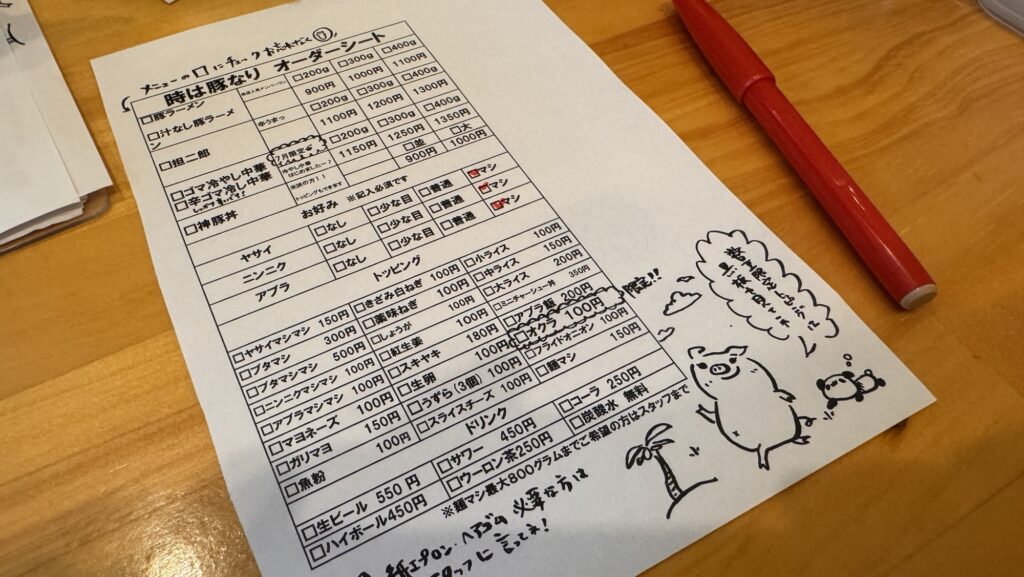 メニューの□にチェックお忘れなく
時は豚なり オーダーシート
□豚ラーメン □200g □300g □400g
900円 1000円 1100円
□汁なし豚ラーメン □200g □300g □400g
1100円 1200円 1300円
□担二郎 辛うまっ □200g □300g □400g
1150円 1250円 1350円
□ゴマ冷やし中華
□辛ゴマ冷し中華
7月限定
冷やし中華
はじめました～♪
トッピングもできます
□神豚丼 □並 □大
900円 1000円
お好み ※記入必須です
ヤサイ □なし □少な目 □普通 □マシ
ニンニク □なし □少な目 □普通 □マシ
アブラ □なし □少な目 □普通 □マシ
トッピング
□ヤサイマシマシ 150円 □きざみ白ねぎ 100円 □小ライス 100円
□ブタマシ 300円 □薬味ねぎ 100円 □中ライス 150円
□ブタマシマシ 500円 □しょうが 100円 □大ライス 200円
□ニンニクマシマシ 100円 □紅生姜 100円 □ミニチャーシュー丼 350円
□アブラマシマシ 100円 □スキヤキ 80円 □アブラ飯 200円
□マヨネーズ 100円 □生卵 100円 □オクラ 100円 限定!!
□ガリマヨ 150円 □うずら(3個) 100円 □フライドオニオン 100円
□魚粉 100円 □スライスチーズ 100円 □麺マシ 150円
ドリンク
□生ビール 550円 □サワー 450円 □コーラ 250円
□ハイボール450円 □ウーロン茶250円 □炭酸水 無料
※麺マシ最大800グラムまでご希望の方はスタッフまで
紙エプロン・ヘアゴム 必要な方は
スタッフに言ってね!